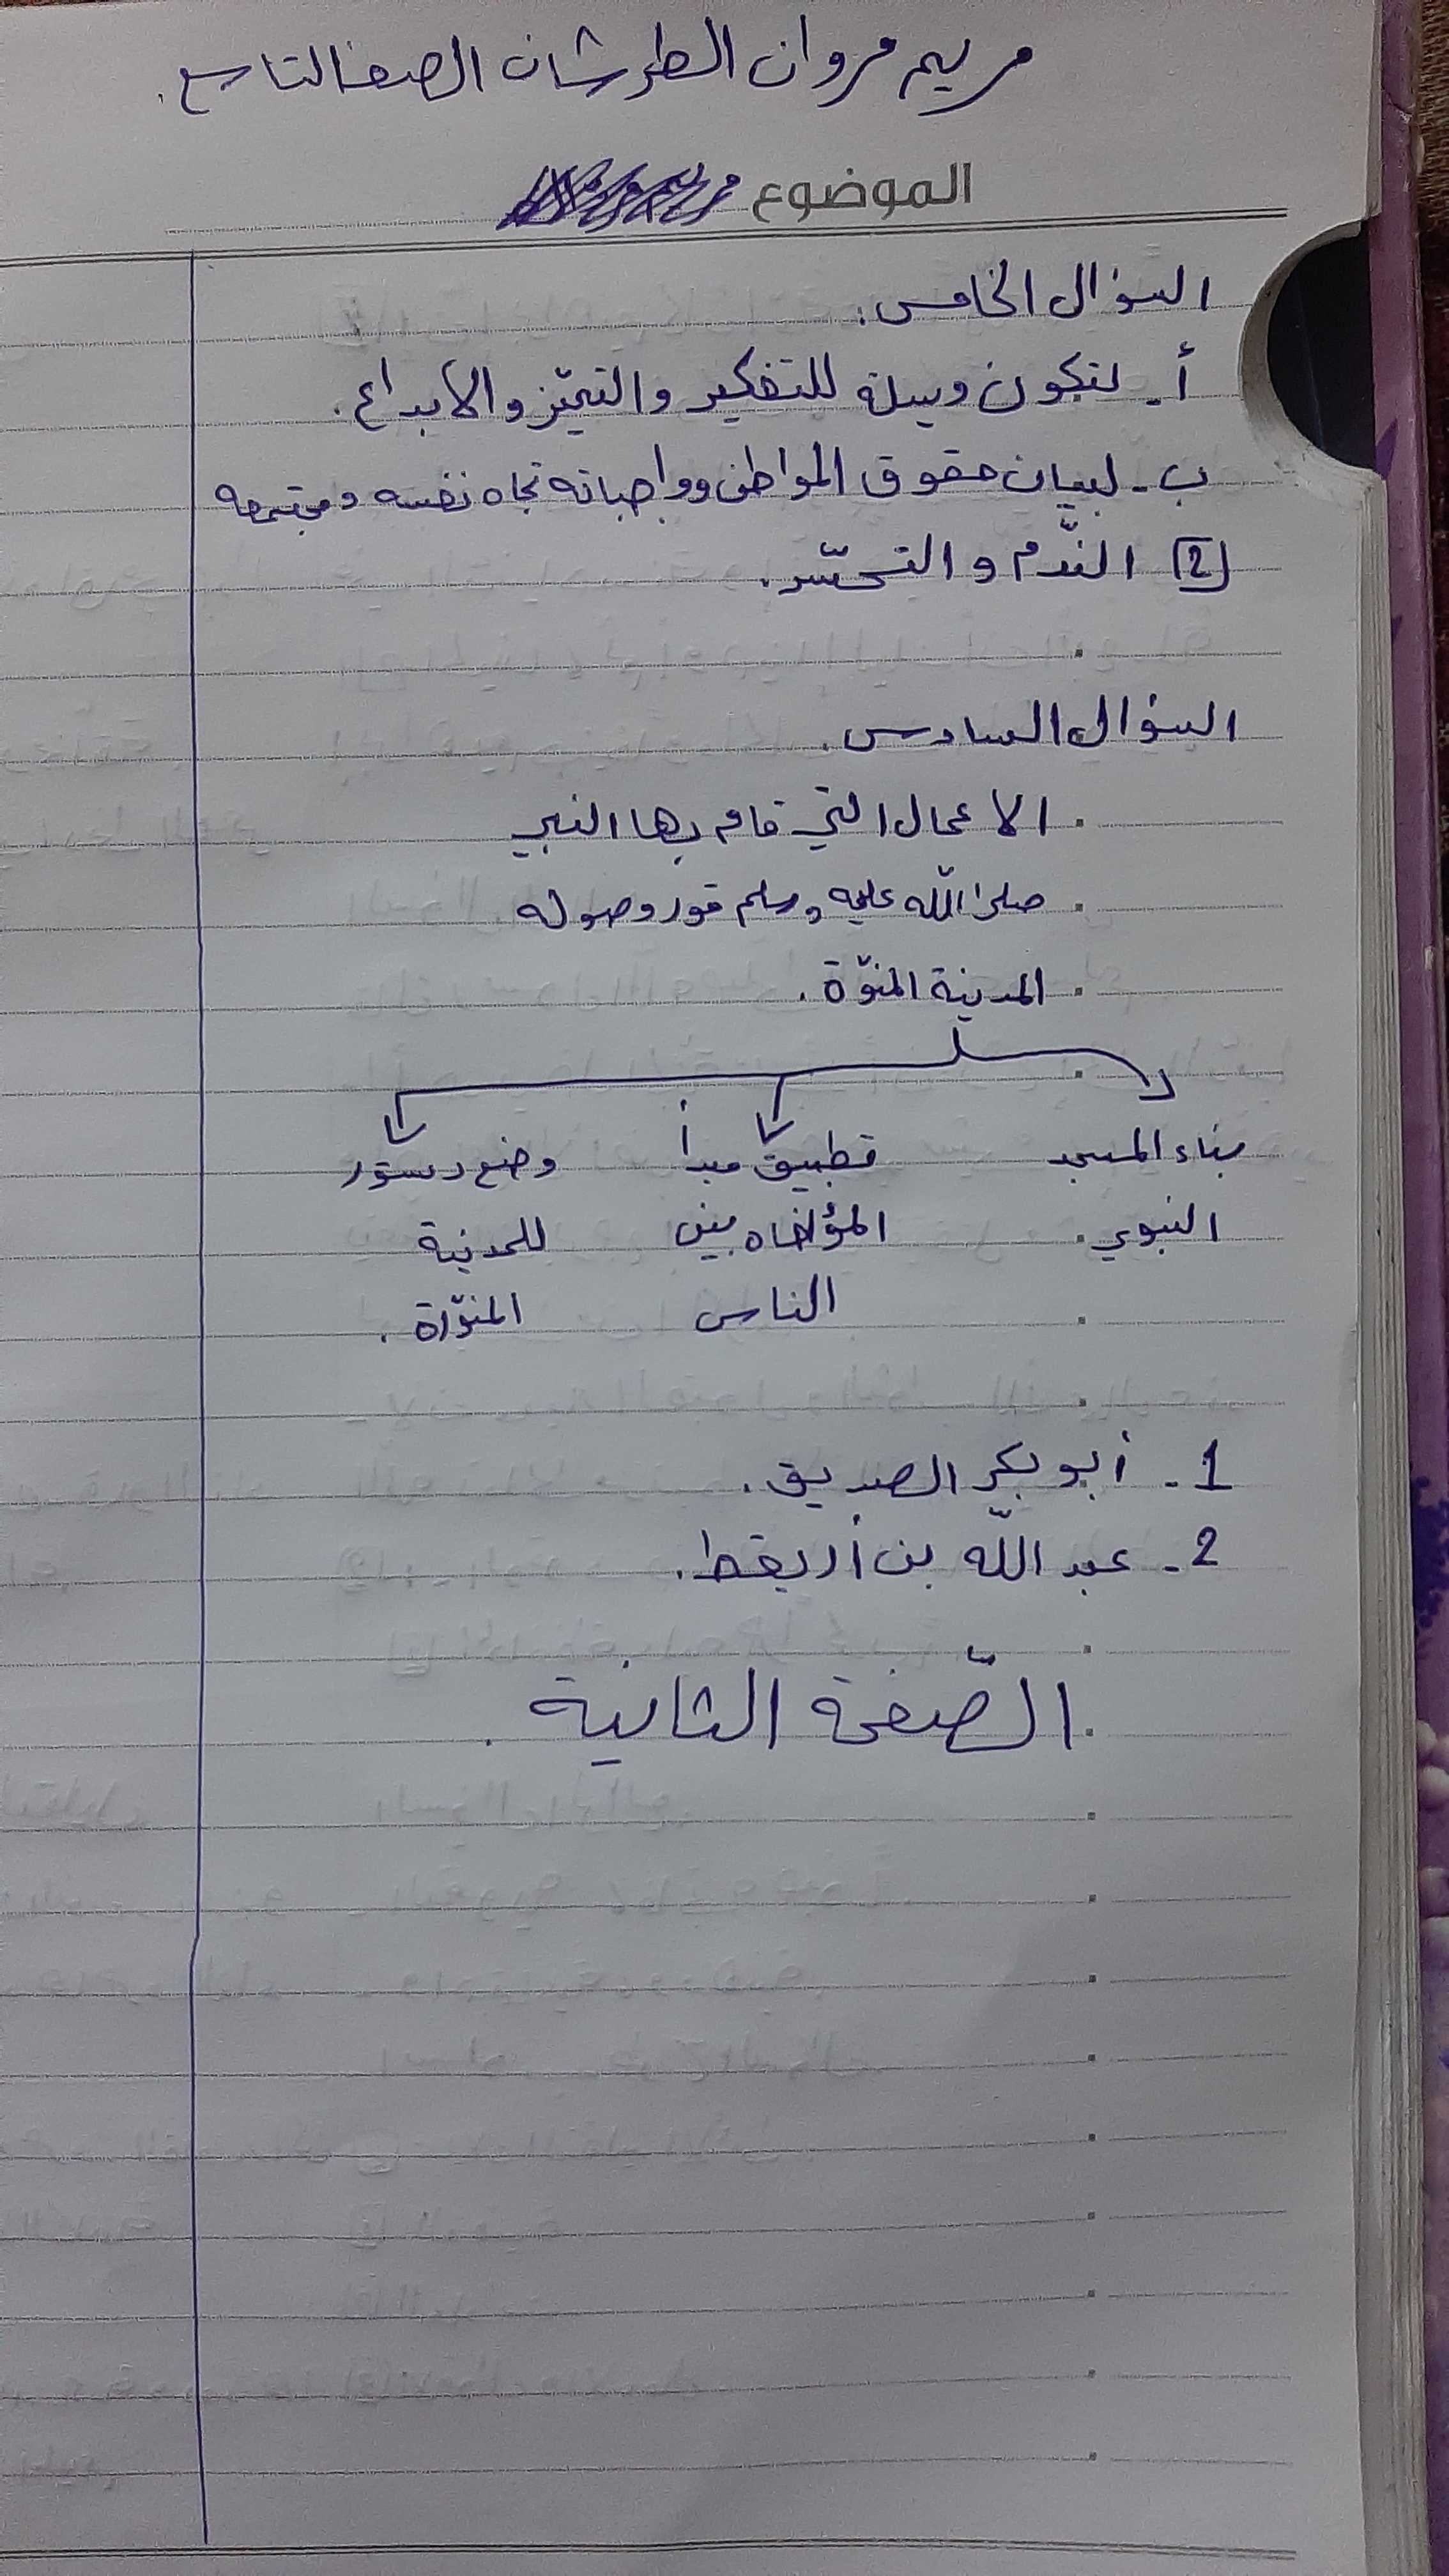 مريم مروان الطرشان الصف التاسع.
الموضوع
السؤال الخامس:
أ- لتكون وسيلة للتفكير والتميّز والابداع.
ب- لبيان حقوق المواطن وواجباته تجاه نفسه ومجتمعه
2 النّدم و التحسّر.
السؤال السادس.
الاعمال التي قام بها النبي
صلى اللّه عليه وسلم فور وصوله
المدينة المنوّة.
بناء المسجد تطبيق مبدأ وضع دستور
النبوي. المؤاخاه بين للمدينة
الناس المنوّرة.
1- أبو بكر الصديق.
2- عبد اللّه بن أريقط.
الصّفحة الثانية.